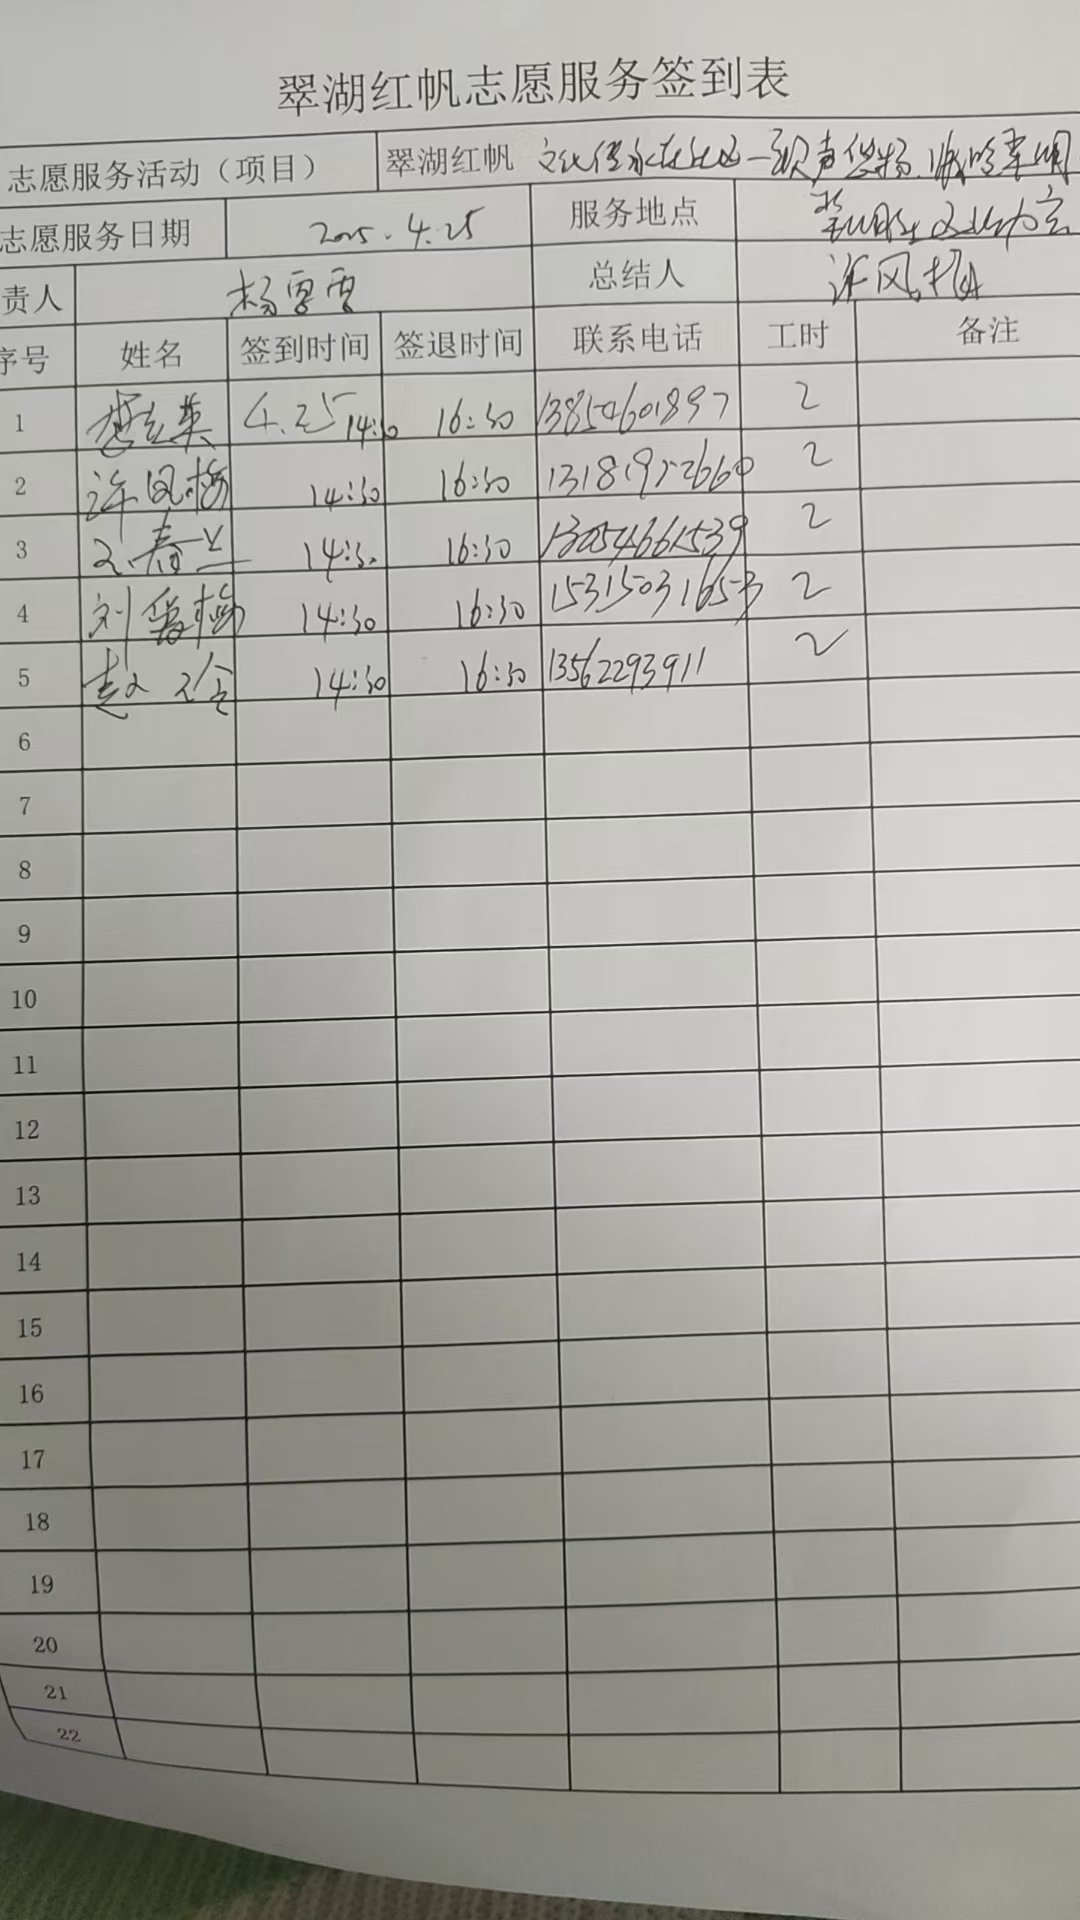 翠湖红帆志愿服务签到表
志愿服务活动（项目） 翠湖红帆 文化传承在社区一歌声悠扬
志愿服务日期 2025.4.25 服务地点
责人 杨雪雪 总结人 许凤梅
序号 姓名 签到时间 签退时间 联系电话 工时 备注
1 4.25 14:30 16:30 13854601897 2
2 许凤梅 14:30 16:30 2
3 春兰 14:30 16:30 13054661539 2
4 刘雪梅 14:30 16:30 2
5 赵 14:30 16:30 13562293911 2
6
7
8
9
10
11
12
13
14
15
16
17
18
19
20
21
22